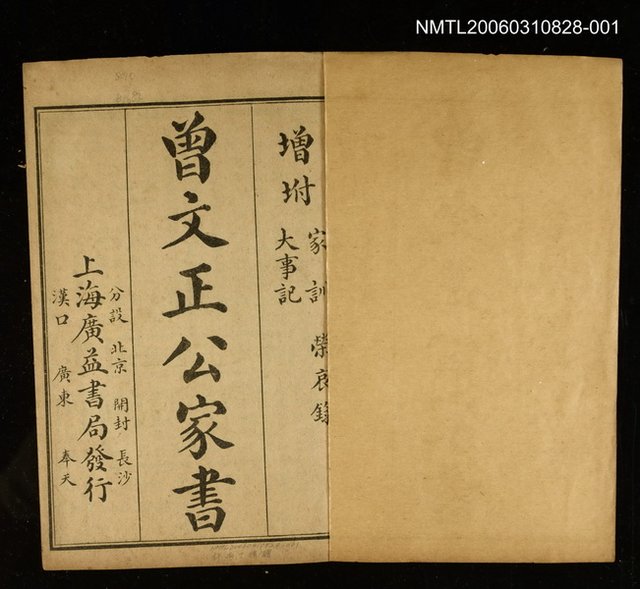 NMTL20060310828-001
增坿
家訓 榮哀錄
大事記
曾文正公家書
分設 北京 開封 長沙
上海廣益書局發行
漢口 廣東 奉天